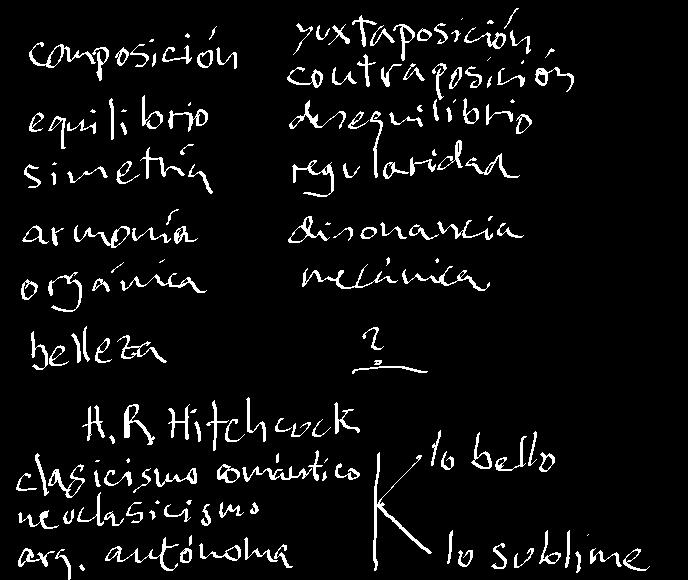 composición yuxtaposición
contraposición
equilibrio desequilibrio
simetría regularidad
armonía disonancia
orgánica mecánica
belleza ?
H. R. Hitchcock
clasicismo romántico lo bello
neoclasicismo
arq. autónoma lo sublime